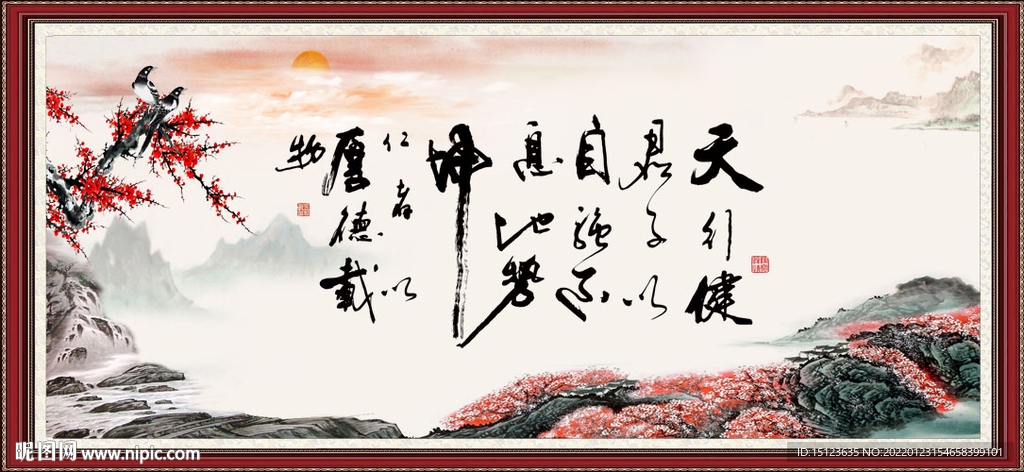 天行健
君子以
自強不
息地勢
坤
仁者以
厚德載
物
昵图网 www.nipic.com
ID:15123635 NO:20220123154658399101